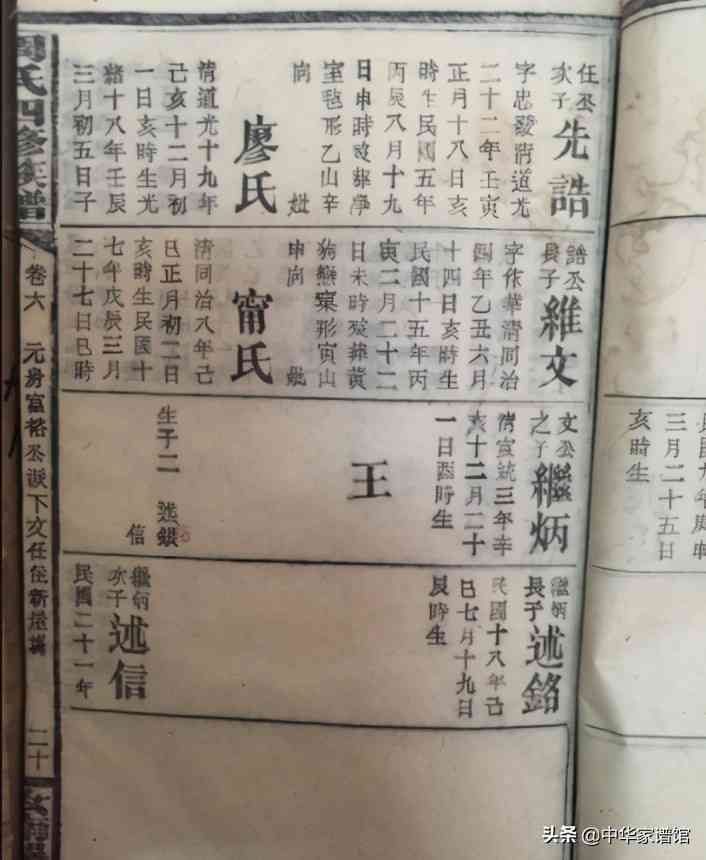 任公
次子
先誥
字忠發清道光
二十二年壬寅
正月十八日亥
時生民國五年
丙辰八月十九
日申時歿葬學
室毡形乙山辛
向 妣
廖氏
清道光十九年
己亥十二月初
一日亥時生光
緒十八年壬辰
三月初五日子
誥公
長子
維文
字依華清同治
四年乙丑六月
十四日亥時生
民國十五年丙
寅二月二十二
日未時歿葬黃
狗戀窠形寅山
申向 妣
甯氏
清同治八年己
巳正月初二日
亥時生民國十
七年戊辰三月
二十七日巳時
文公
之子
繼炳
清宣統三年辛
亥十二月二十
一日酉時生
王
生子二 述銀
信
繼炳
長子
述銘
民國十八年己
巳七月十九日
辰時生
繼炳
次子
述信
民國二十一年
周氏四修族譜
卷六 元房富裕公派下文任任新
二十
三月二十五日
亥時生
头条 @中华家谱馆